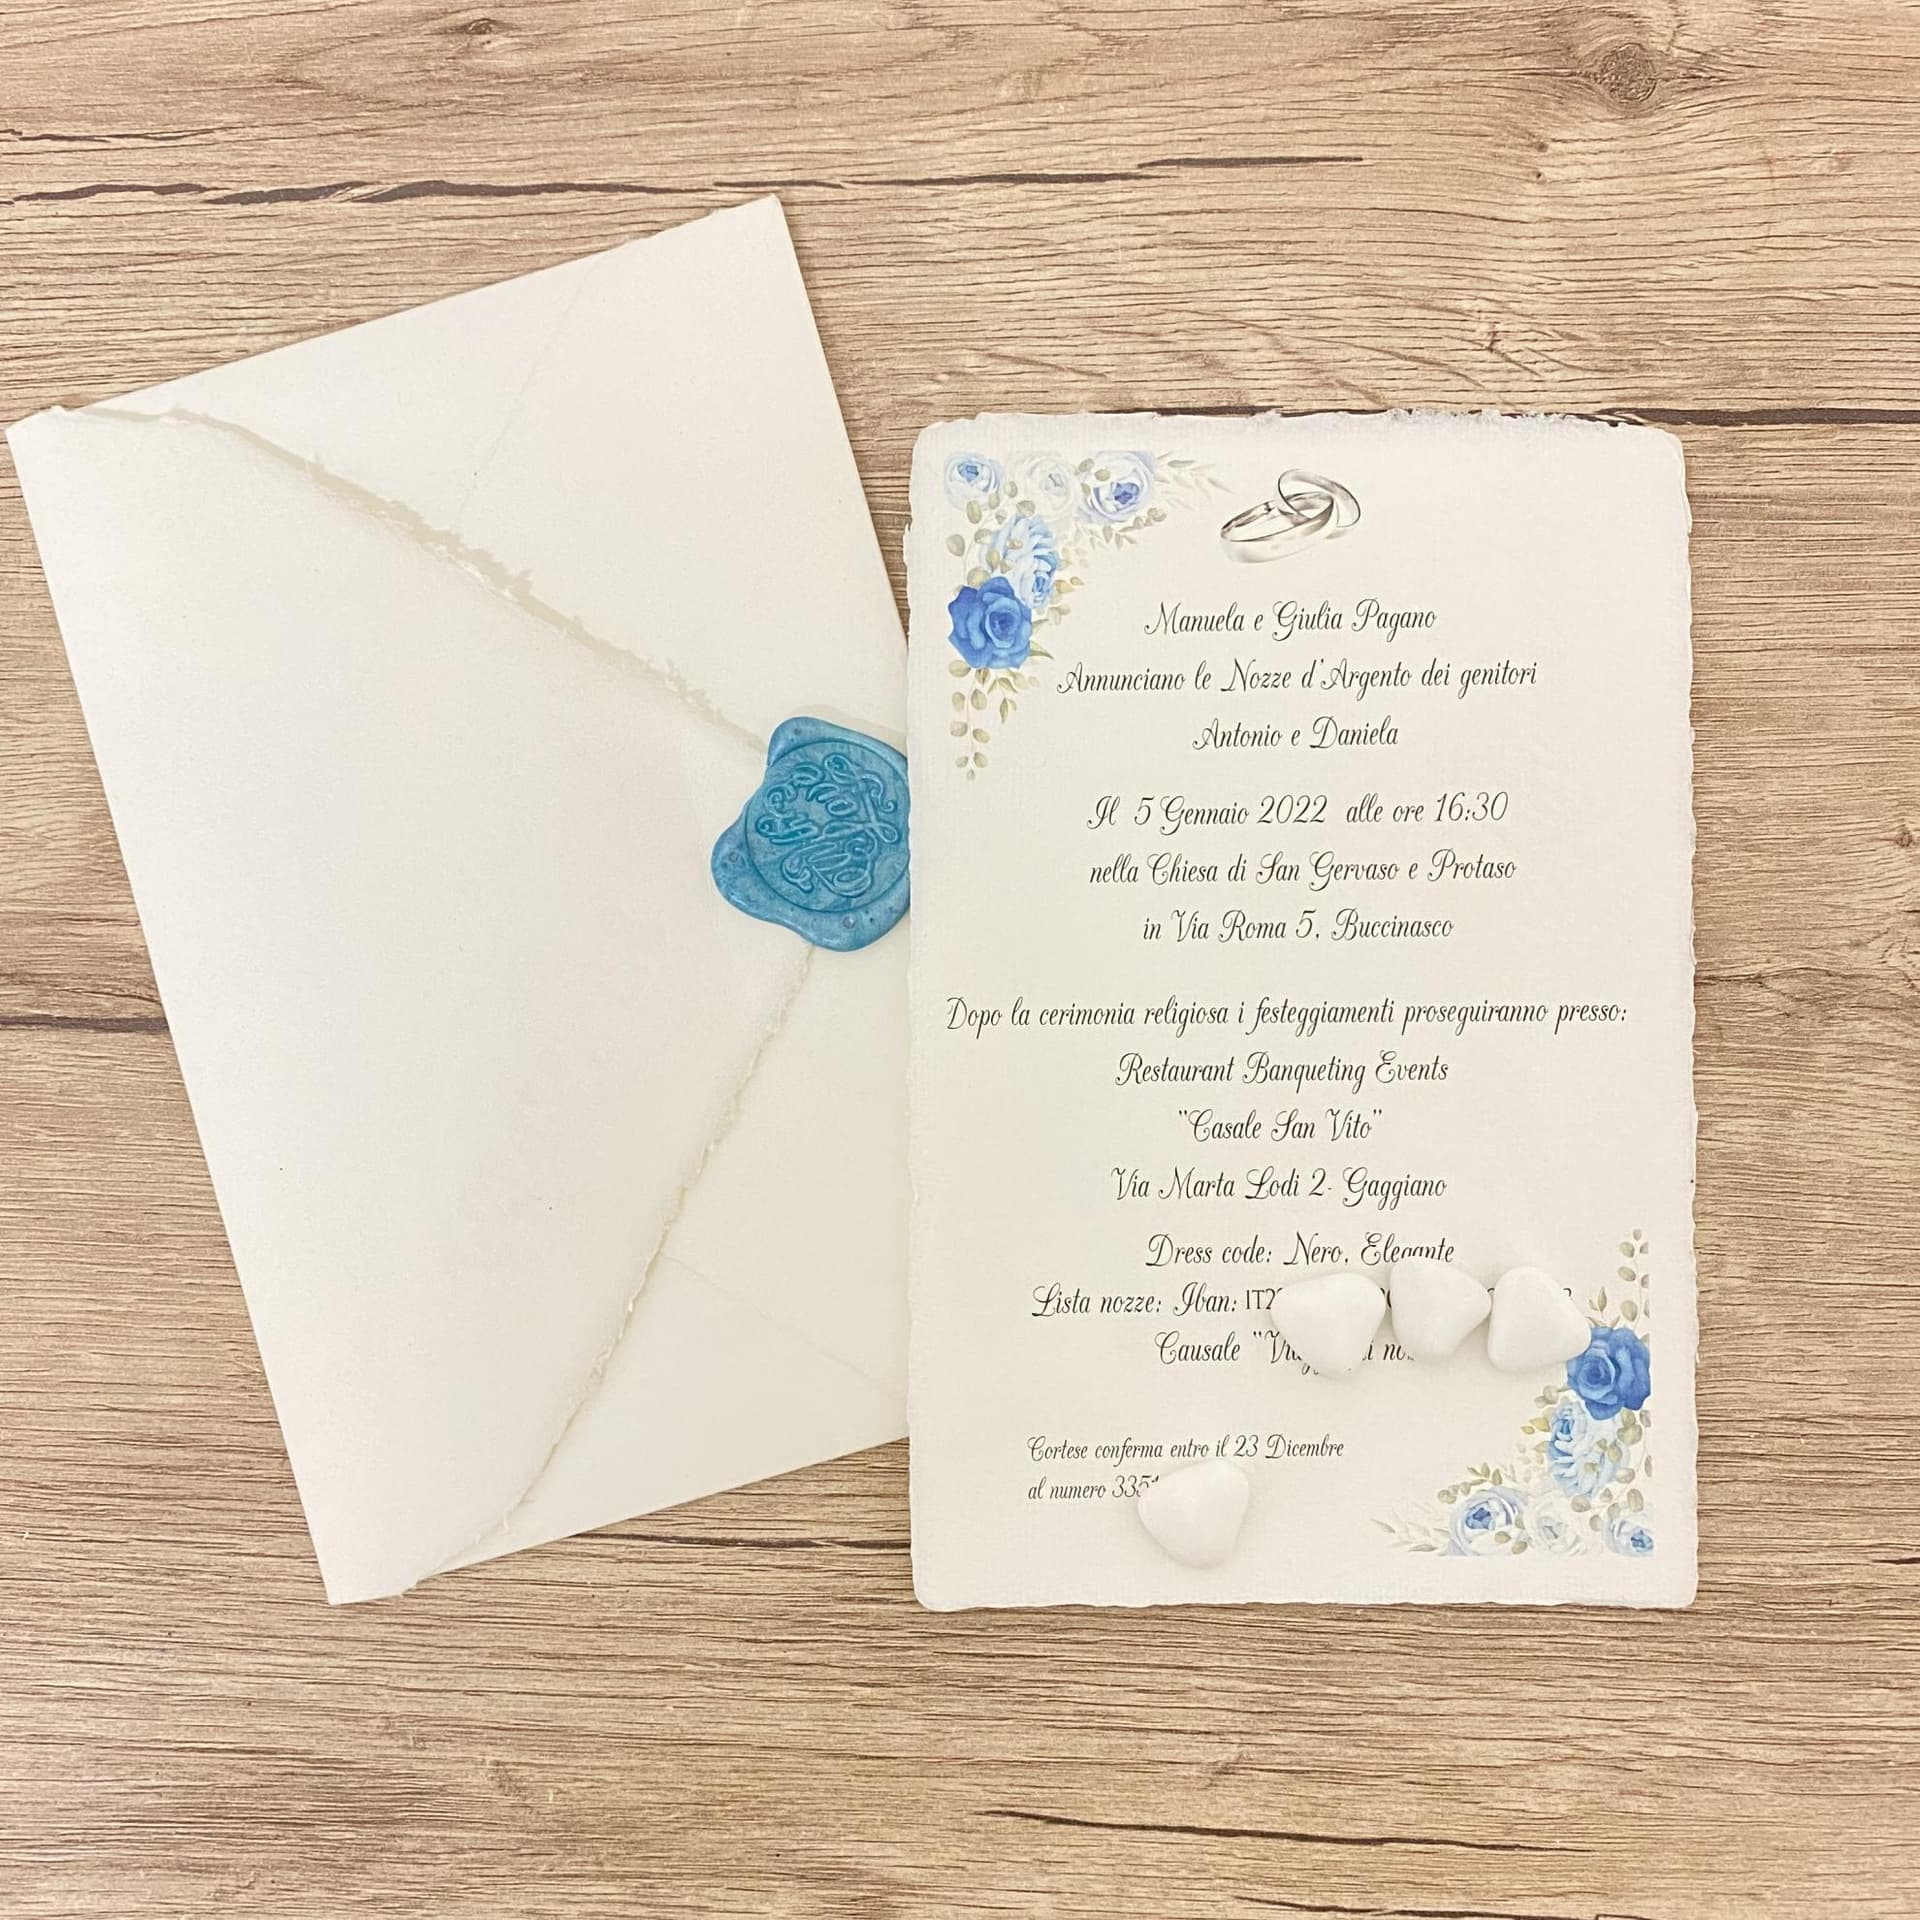 Manuela e Giulia Pagano
Annunciano le Nozze d'Argento dei genitori
Antonio e Daniela
Il 5 Gennaio 2022 alle ore 16:30
nella Chiesa di San Gervaso e Protaso
in Via Roma 5, Buccinasco
Dopo la cerimonia religiosa i festeggiamenti proseguiranno presso:
Restaurant Banqueting Events
"Casale San Vito"
Via Marta Lodi 2- Gaggiano
Dress code: Nero, Elegante
Lista nozze: Iban:
Causale
Cortese conferma entro il 23 Dicembre
al numero